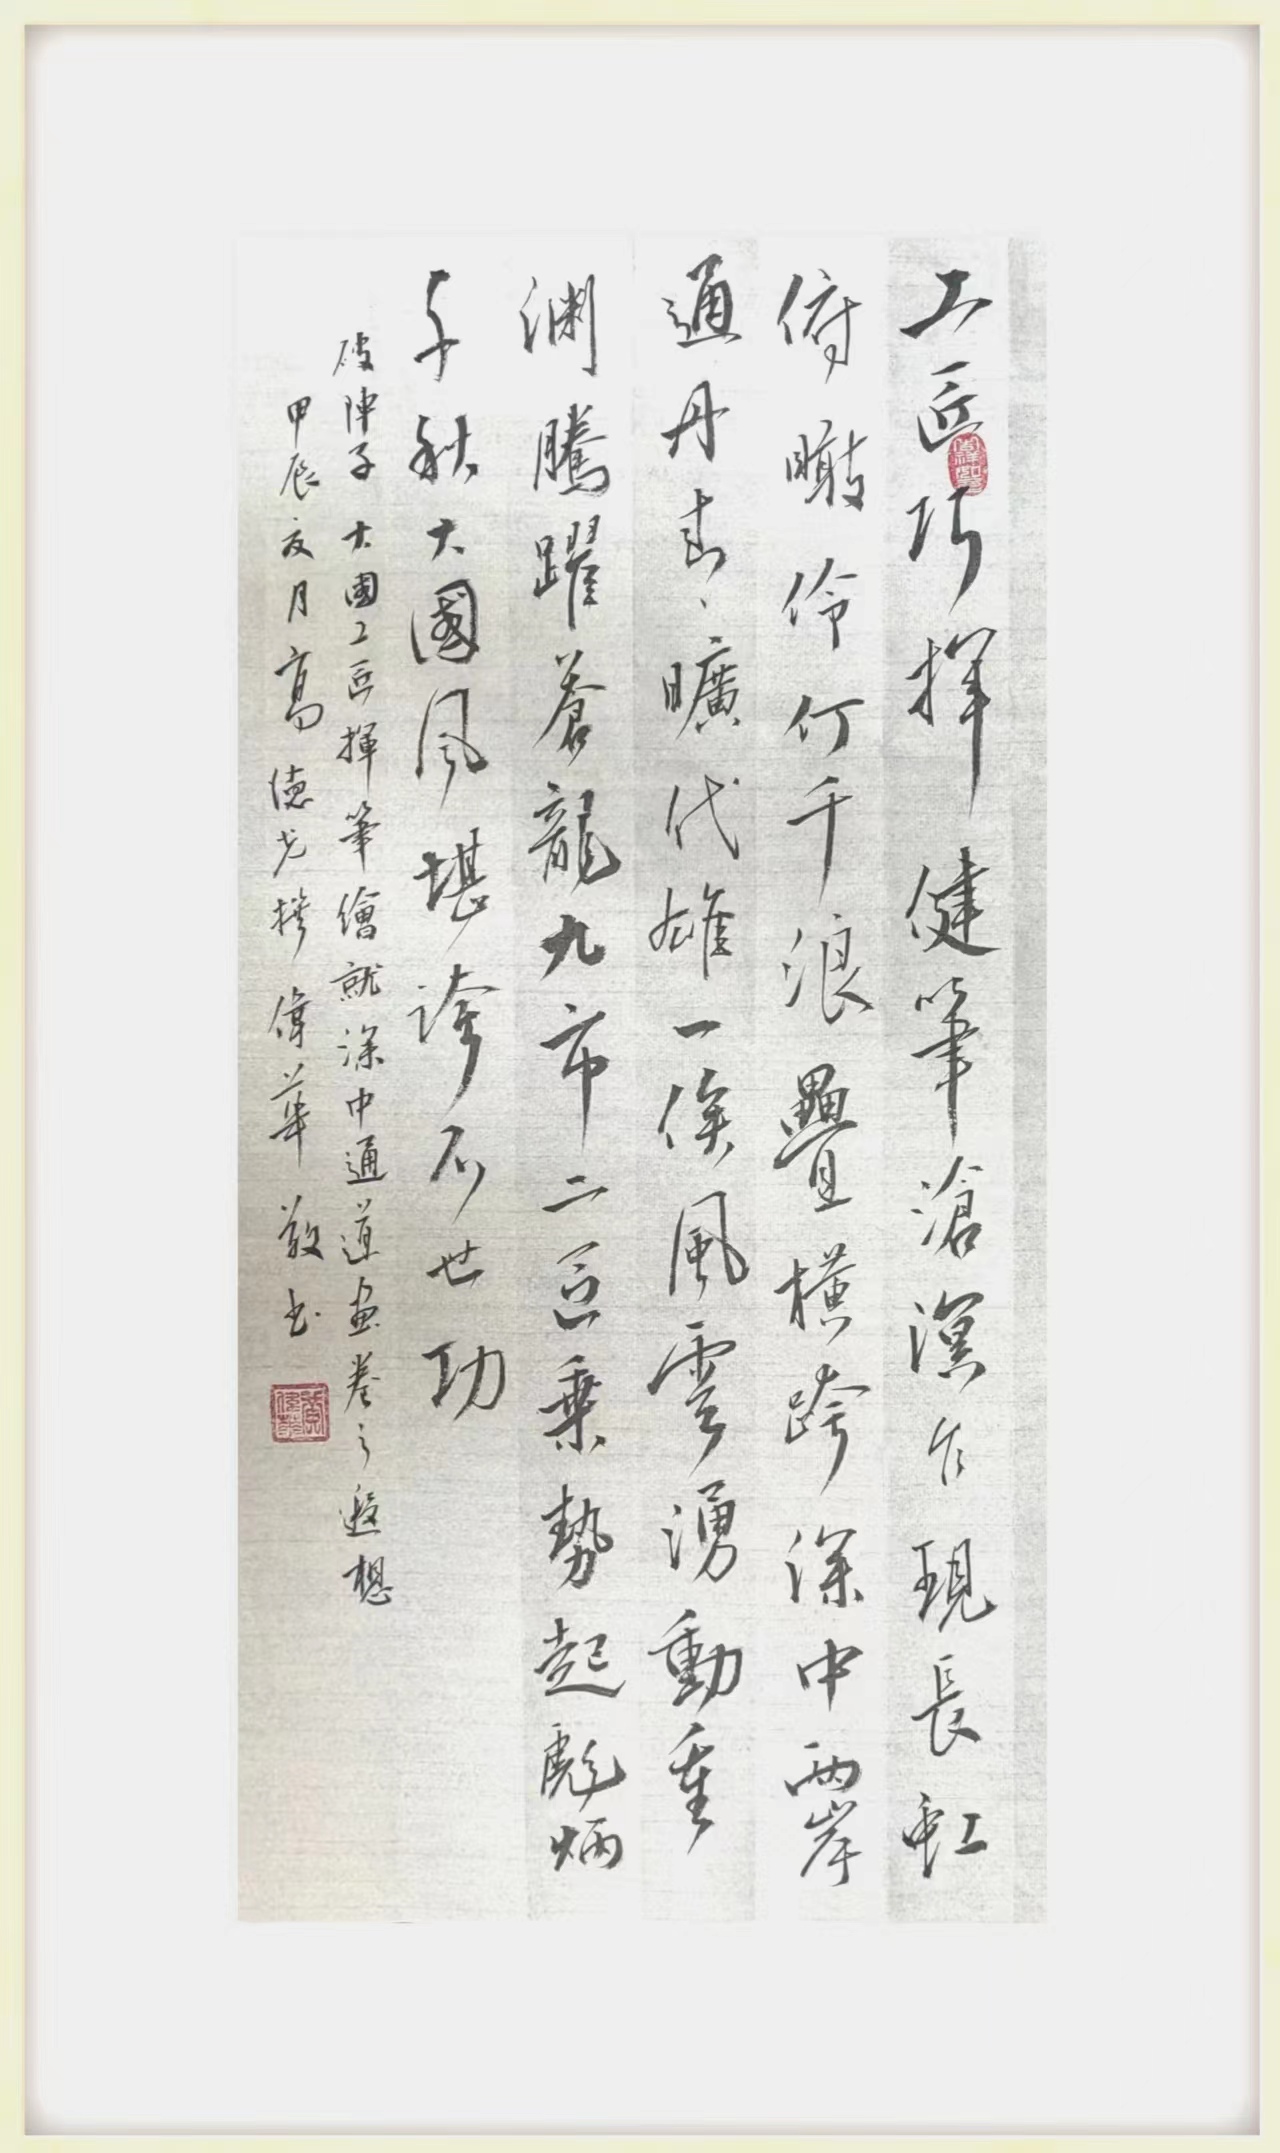 工匠巧揮健筆滄溟乍現長虹
俯瞰伶仃千浪疊橫跨深中兩岸
通丹青曠代雄一俟風雲湧動重
淵騰躍蒼龍九市二區乘勢起彪炳
千秋大國風堪誇不世功
破陣子大國工匠揮筆繪就深中通道畫卷之遐想
甲辰夏月高德光撰偉華敬書